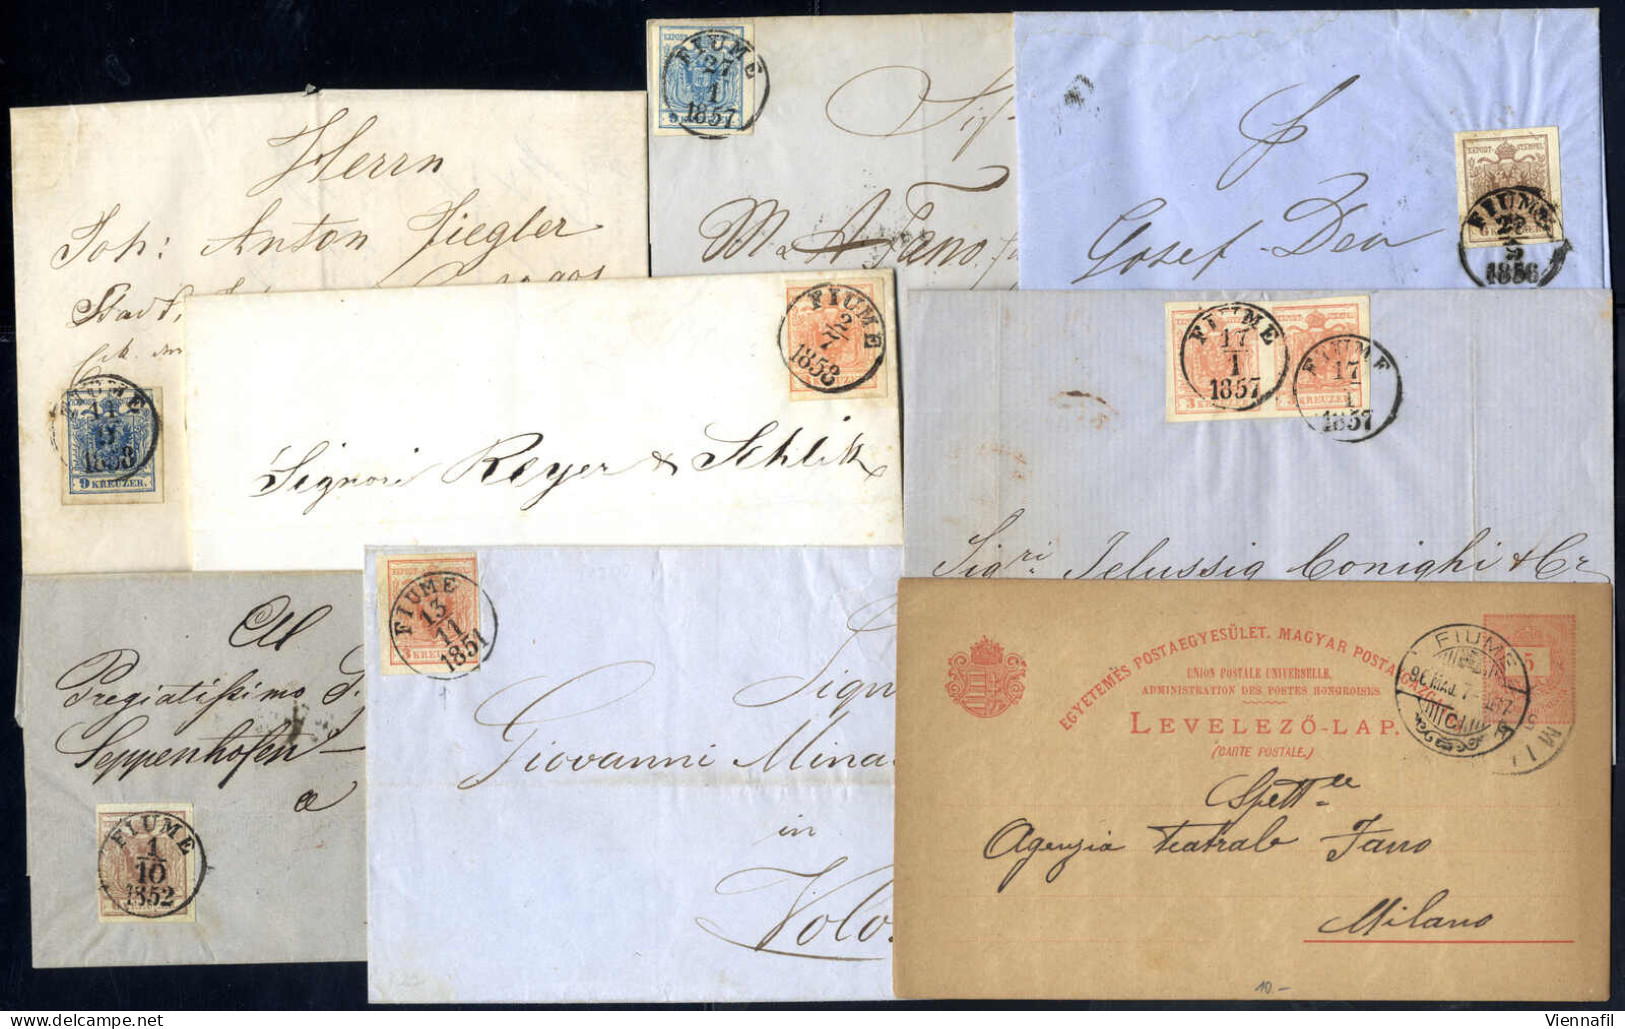 Herrn
Joh: Anton Ziegler
FIUME
1858
9 KREUZER.
FIUME
27
1
1857
FIUME
1856
Gosef Den
FIUME
2
7
1858
KREUZER
Signori Reyer & Schlik
FIUME
17
1
1857
3 KREUZER
FIUME
17
1
1857
3 KREUZER
Sig.ri Jelussig Conighi & C
FIUME
1
10
1852
Al
Pregiatissimo
Seppenhofen
a
FIUME
13
11
1851
3 KREUZER
Sign
Giovanni Mina
in
Volo
EGYETEMES POSTAEGYESÜLET. MAGYAR POSTAIGAZG
UNION POSTALE UNIVERSELLE.
ADMINISTRATION DES POSTES HONGROISES
LEVELEZŐ-LAP.
(CARTE POSTALE.)
5
FIUME
Spett.le
Agenzia Teatrale Fano
Milano
10-
Viennafil